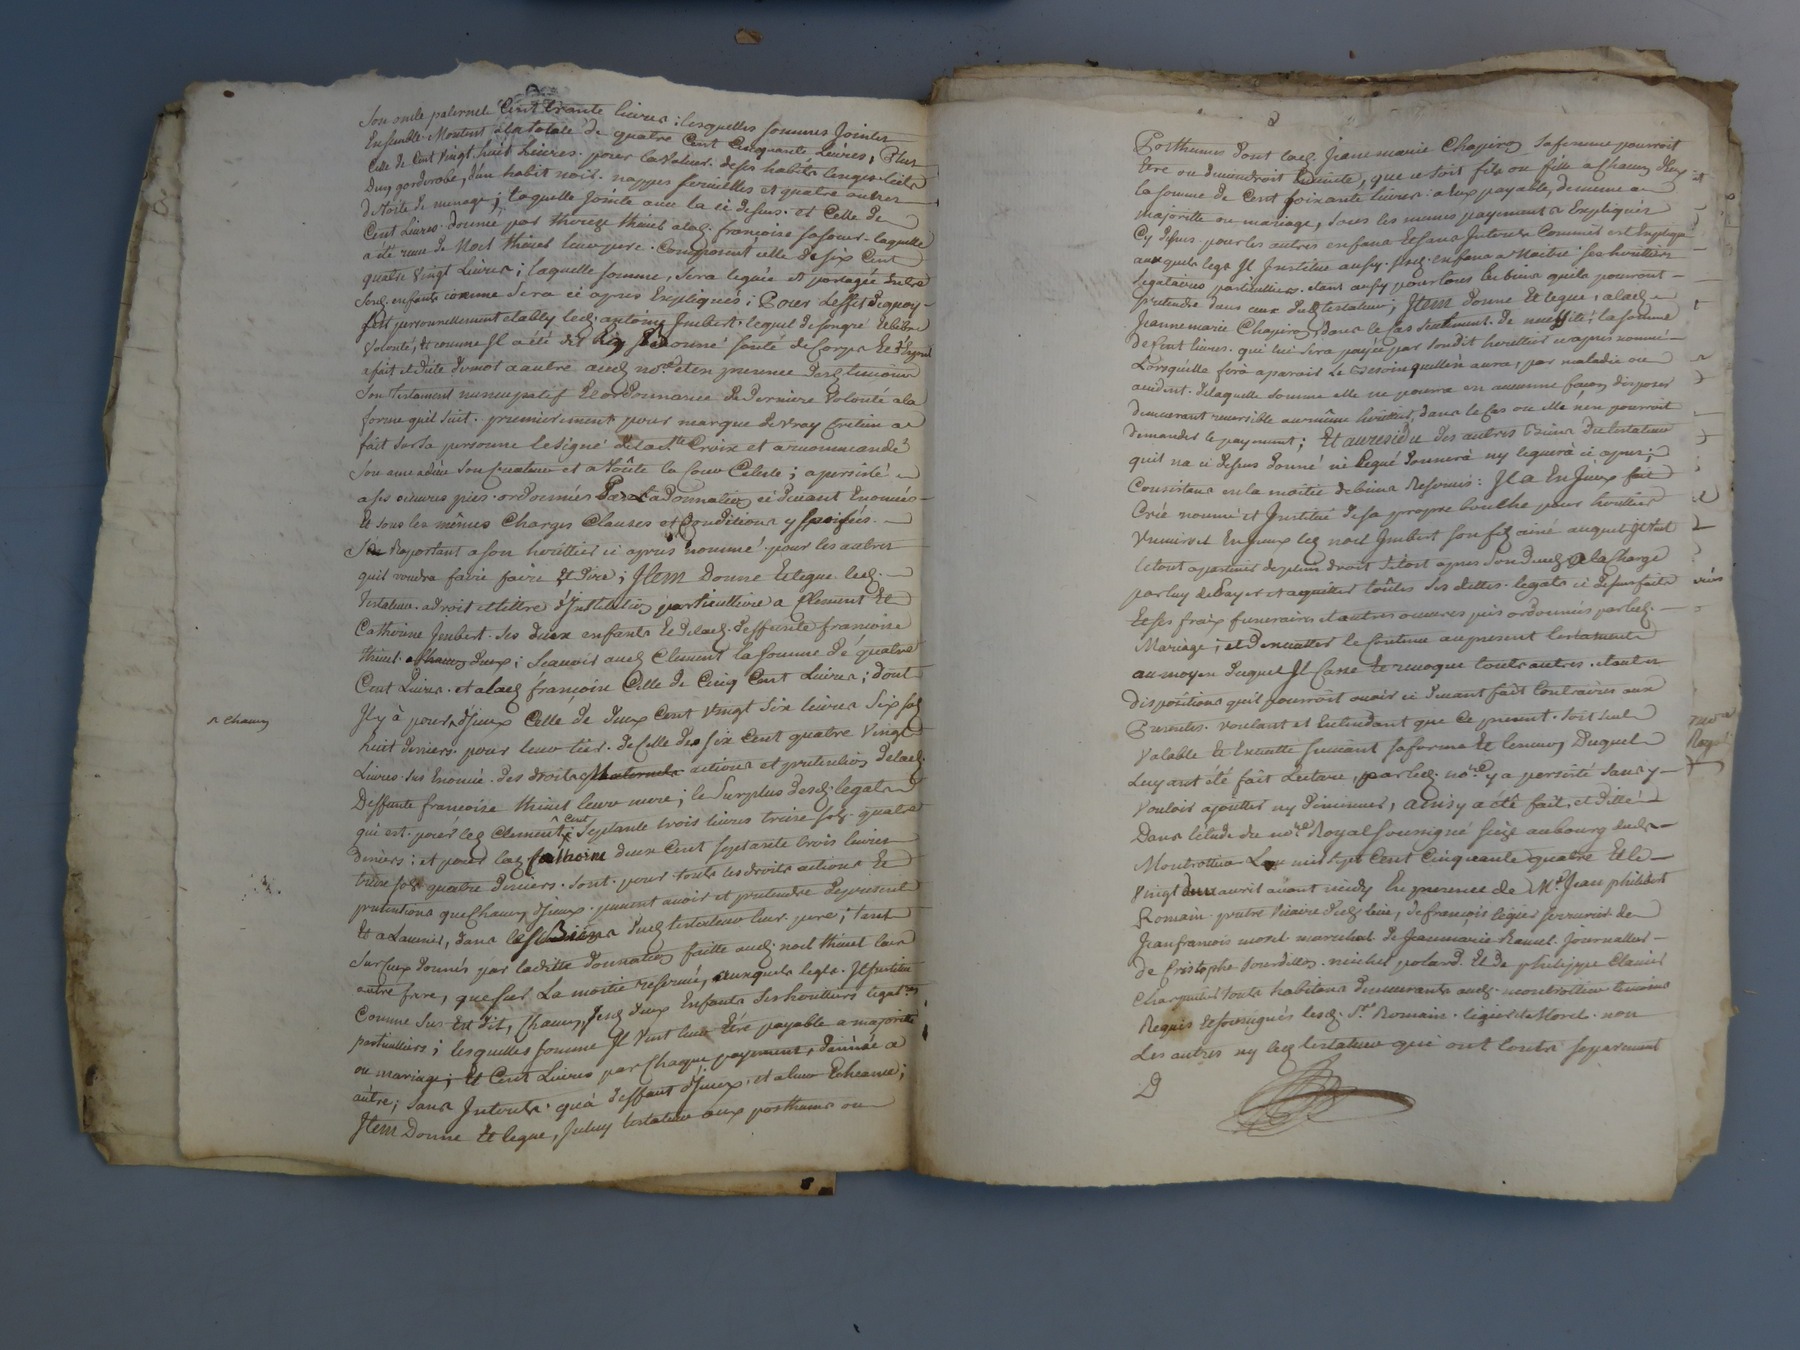 son oncle paternel Cent trante livres : lesquelles sommes Jointes
Ensemble Montent a la totale de quatre Cent Cinquante Livres, Plus
Celle de Cent Vingt huit Livres pour la valeur de ses habits linges toile
Dun garderobe, d'un habit noir nappes serviettes et quatre autres
de toile de menage ; laquelle Jointe avec la ci dessus et Celle de
Cent Livres donnée par thereze thinet a lad. françoise sa soeur laquelle
a été reüe de Noel thinet leur pere Composent celle de six Cent
quatre Vingt Livres ; laquelle somme, sera leguée et partagée entre
sesd. enfants comme sera ci apres Expliqués ; Pour L'effet dequoy
s'est personnellement etably led. antoine Imbert lequel de son gré Et libre
Volonté, Et comme Il a été dit
a fait et dicté de mot a autre aud. no.re et en presence desd. temoins
son testament nuncupatif Et ordonnance de derniere Volonté a la
forme quil suit. premierement pour marque de vray Cretien a
fait sur sa personne le signe de la Ste Croix et a recommandé
son ame a dieu son Createur et a toute la Cour Celeste ; a persisté
a ses oeuvres pies ordonnées Par La Donnation ci devant Enoncés
Et sous les mêmes Charges Clauses et Conditions y specifiés.
Se Raportant a son herittier ci apres nommé pour les autres
quil voudra faire faire Et dire ; Item Donne Et legue led.
testateur a droit et tittre d'Institution particulliere a Clement Et
Catherine Imbert ses deux enfants Et de lad. deffunte francoise
thinet a Chacun d'eux ; scauoir aud. Clement la somme de quatre
Cent Livres et a lad. françoise Celle de Cinq Cent Livres ; dont
a chacun
Il y à pour d'Jeux Celle de deux Cent Vingt six livres six sols
huit deniers pour leur tier de Celle des six Cent quatre Vingt
Livres sus Enoncée des droits Maternels actions et pretentions de lad.
Deffunte francoise thinet leur mere ; le surplus desd. legats
qui est pour led. Clement Cent septante trois livres treize sols quatre
deniers ; et pour lad. Catherine deux Cent septante trois livres
treize sols quatre deniers sont pour touts les droits actions Et
pretentions que Chacun d'Jeux peuvent avoir et pretendre de present
Et a Lauenir, dans les Biens dud. testateur leur pere ; tant
sur Ceux donnés par laditte donnation faitte aud. noel thinet leur
autre frere, que sur La moitié reservée, auxquels legts Il Institue
Comme sus Est dit, Chacun desd. deux Enfants ses herittiers legat.res
particulliers ; lesquelles somme Il Veut leur Etre payable a majorité
ou mariage ; Et Cent Livres par Chaque payement, d'année a
autre ; sans Interets qu'a deffaut d'Jceux, et a leur Echeance ;
Item Donne Et legue, Icelluy testateur aux posthumes ou
2
Posthumes dont lad. Jeane marie Chapiron sa femme pourroit
Etre ou deviendroit Enceinte, que ce soit fils ou fille a Chacun d'Eux
la somme de Cent soixante livres a eux payable, de meme a
majoritte ou mariage, sous les memes payements Expliqués
Cy dessus pour les autres enfans Et sans Interets Comme est Expliqué
auxquels legs Il Institue aussy sesd. enfans a Naitre ses herittiers
legataires particulliers, et ans aussy pour tous les biens quils pourront
pretendre dans ceux dud. testateur ; Item donne Et legue, a lad.
Jeanne marie Chapiron dans le Cas seulement de necessité, la somme
de Cent livres qui lui sera payée par sondit herittier ci apres nommé
Lorsquelle fera aparoir Le besoin quelle en aura, par maladie ou
accident. de laquelle somme elle ne pourra en aucunne façon disposer
demeurant reversible au même herittier, dans le Cas ou elle n'en pourroit
demander le payement ; Et au residu des autres Biens du testateur
quil na ci dessus donné ni legué donnera ny leguera ci apres ;
Consistans en la moitié de biens Reservés : Il a En Jceux fait
Créé nommé et Institué de sa propre bouche pour herittier
Universel En Jceux led. noel Imbert son fils ainé auquel Il veut
le tout apartenir de plein droit sitôt apres son deced a la Charge
par luy de Payer et acquitter toutes ses dettes legats ci dessus faits
Et ses fraix funeraires et autres oeuvres pies ordonnées par led.
Mariage ; et d'executter le Contenu au present testament
au moyen duquel Il Casse Et revoque touts autres et autres
dispositions quil pourroit avoir ci devant fait Contraires aux
Presentes. voulant et Entendant que Ce present soit seul
Valable Et Executté suivant sa forme Et teneur, Duquel
Luy ayant été fait Lecture, par led. no.re y a persisté sans y
Vouloir ajoutter ny diminuer, ainsy a été fait, et dicté
Dans l'étude du no.re Royal soussigné size au bourg dud.
Montrottier L'an mil sept Cent Cinquante quatre Et le
Vingt deux avril avant midy En presence de M.e Jean philibert
Romain pretre Vicaire dud. lieu, de françois legier serrurier de
Jean francois morel marechal de Jeanmarie Ramel Journallier
de Cristophe Bourdillon michel polard Et de philippe Clavier
Charpentier touts habitans demeurants aud. montrottier temoins
Requis Et soussignés lesd. Sr Romain legier Et Morel non
Les autres ny led. testateur qui ont toutes separement
D